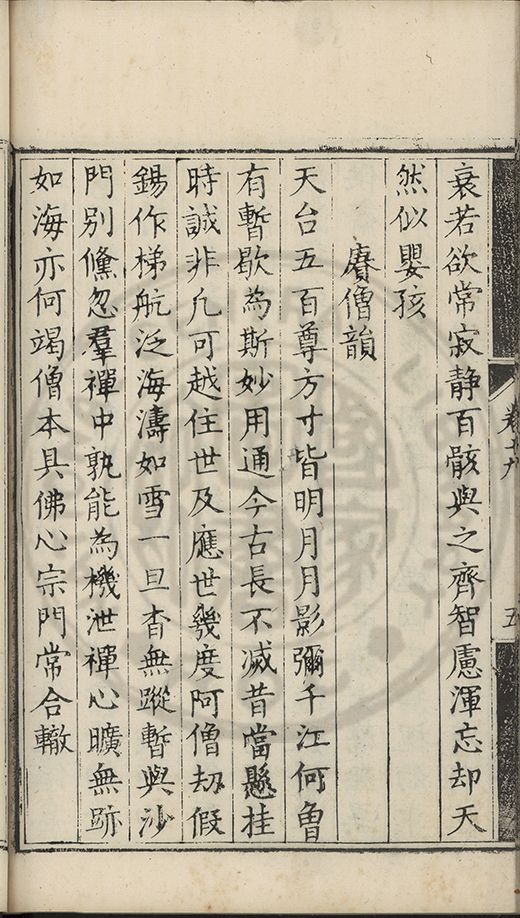 卷十九
五
衰若欲常寂静百骸與之齊智慮渾忘却天
然似嬰孩
賡僧韻
天台五百尊方寸皆明月月影彌千江何曾
有暫歇為斯妙用通今古長不滅昔當懸挂
時誠非凢可越住世及應世幾度阿僧刼假
錫作梯航泛海濤如雪一旦杳無蹤暫與沙
門別儵忽羣禪中孰能為機泄禪心曠無跡
如海亦何竭僧本具佛心宗門常合轍